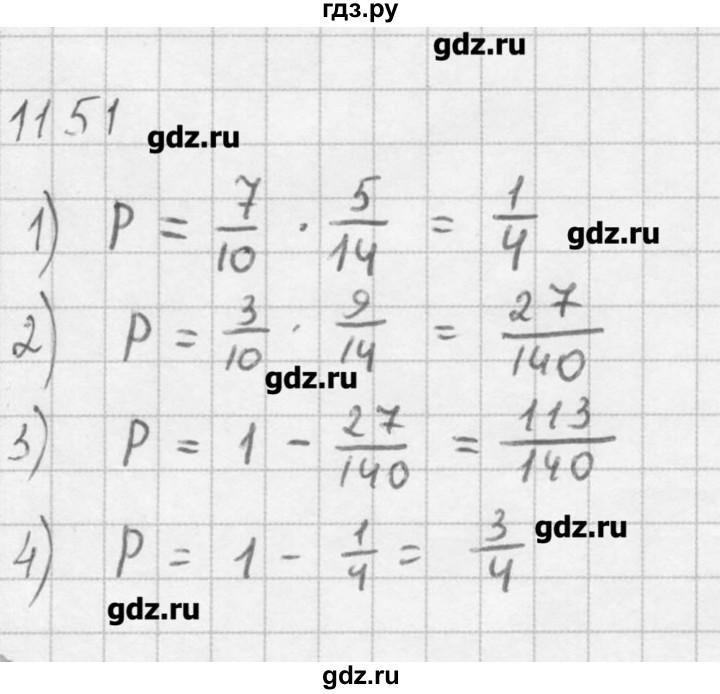 гдз.ру
gdz.ru
1151
gdz.ru
1) P = 7/10 · 5/14 = 1/4
gdz.ru
2) P = 3/10 · 9/14 = 27/140
gdz.ru
3) P = 1 - 27/140 = 113/140
gdz.ru
4) P = 1 - 1/4 = 3/4
gdz.ru
gdz.ru